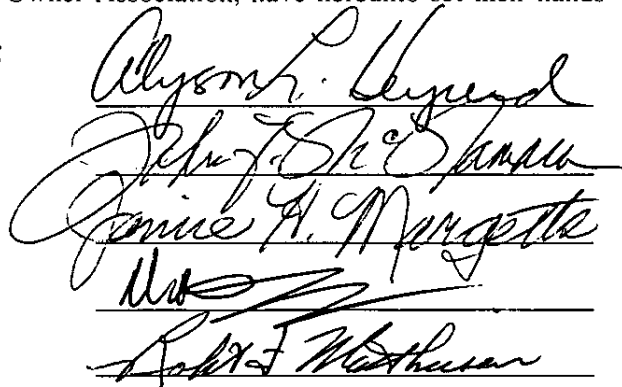 Owner Association, have hereunto set their hands
Alyson L. Heyrend
John F. McNamara
Janice H. Margetts
Robert F Mathusen